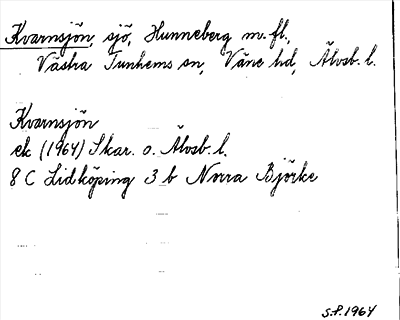 Kvarnsjön, sjö, Hunneberg m. fl.,
Västra Tunhems sn, Väne hd, Älvsb. l.
Kvarnsjön
ek (1964) Skar. o. Älvsb. l.
8 C Lidköping 3 b Norra Björke
S.P. 1964